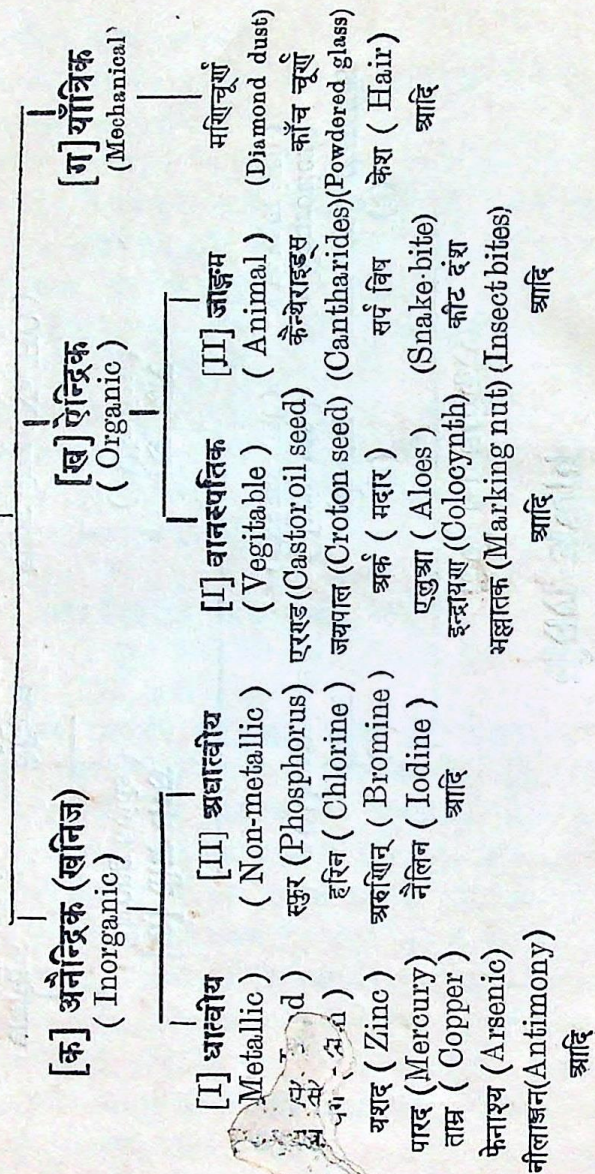 [क] अनैन्द्रिक (खनिज)
( Inorganic )
[I] धात्वीय
Metallic )
d )
यशद ( Zinc )
पारद (Mercury)
ताम्र ( Copper )
फेनाश्य (Arsenic)
नीलाञ्जन(Antimony)
आदि
[II] अधात्वीय
( Non-metallic )
स्फुर (Phosphorus)
हरिन ( Chlorine )
अरुणिन् ( Bromine )
नैलिन ( Iodine )
आदि
[ख] ऐन्द्रिक
( Organic )
[I] वानस्पतिक
( Vegitable )
एरण्ड (Castor oil seed)
जयपाल (Croton seed)
अर्क ( मदार )
एलुआ ( Aloes )
इन्द्रायण (Colocynth)
भल्लातक (Marking nut)
आदि
[II] जाङ्गम
( Animal )
कैन्थेराइड्स
(Cantharides)
सर्प विष
(Snake-bite)
कीट दंश
(Insect bites)
आदि
[ग] याँत्रिक
(Mechanical)
मणिचूर्ण
(Diamond dust)
काँच चूर्ण
(Powdered glass)
केश ( Hair )
आदि